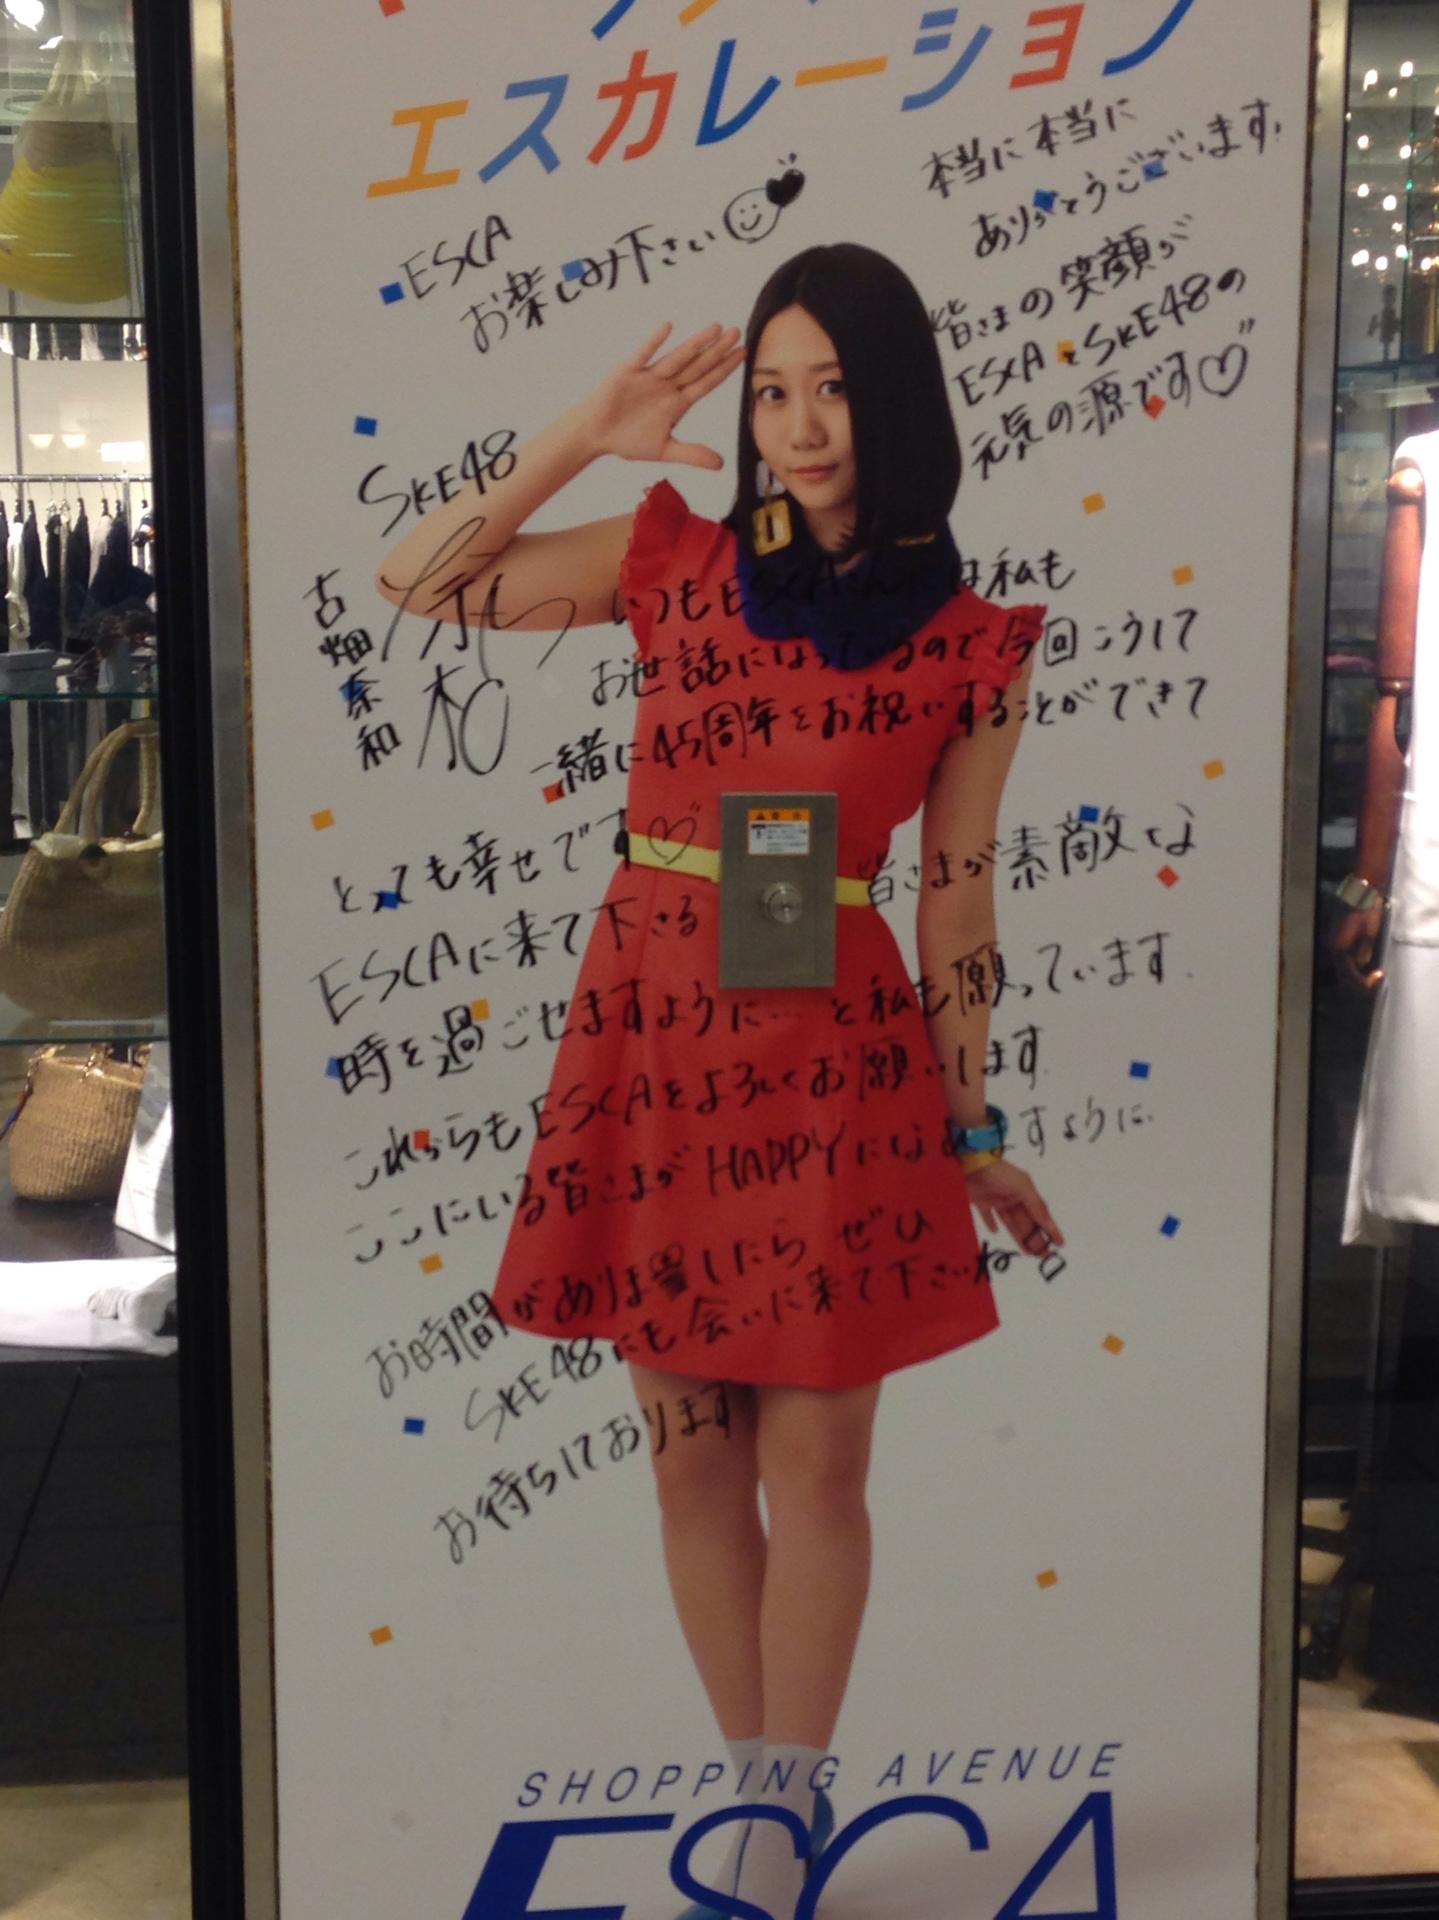 エスカレーション
ESCA
お楽しみ下さい
本当に本当に
ありがとうございます。
皆さまの笑顔が
ESCAとSKE48の
元気の源です♡
SKE48
古畑奈和
いつもESCAさんには私も
お世話になっているので今回こうして
一緒に45周年をお祝いすることができて
とっても幸せです♡ 皆さまが素敵な
ESCAに来て下さる
時を過ごせますように…と私も願っています.
これからもESCAをよろしくお願いします
ここにいる皆さまがHAPPYになれますように.
お時間がありましたらぜひ
SKE48にも会いに来て下さいね
お待ちしております
SHOPPING AVENUE
ESCA